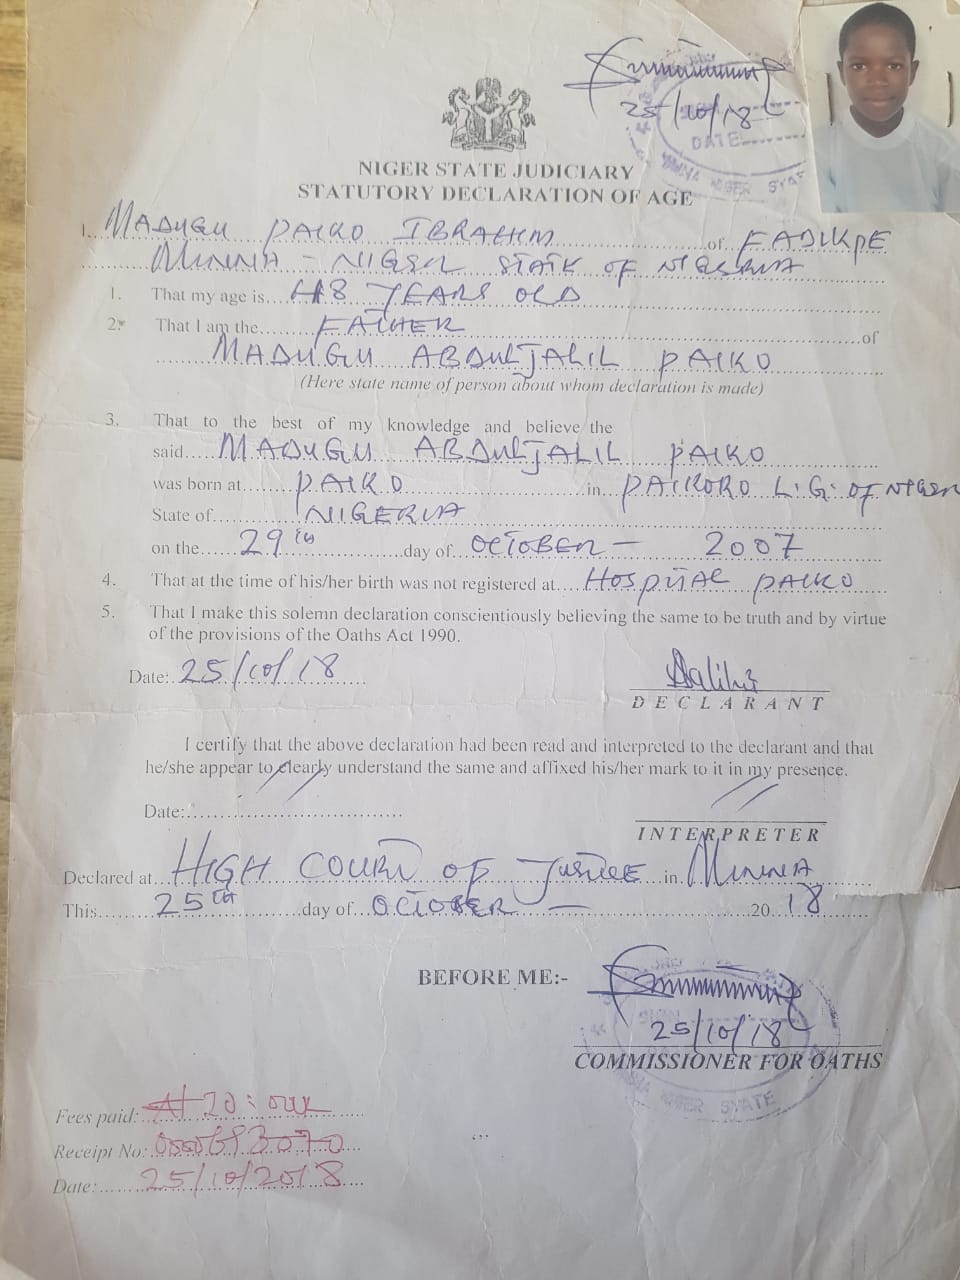 25/10/18
DATE
NIGER STATE JUDICIARY
STATUTORY DECLARATION OF AGE
I, MADUGU PAIKO IBRAHIM of FADIKPE
MINNA - NIGER STATE OF NIGERIA
1. That my age is 48 YEARS OLD
2. That I am the FATHER of
MADUGU ABDULJALIL PAIKO
(Here state name of person about whom declaration is made)
3. That to the best of my knowledge and believe the
said MADUGU ABDULJALIL PAIKO
was born at PAIKO in PAIKORO L.G. OF NIGER
State of NIGERIA
on the 29th day of OCTOBER - 2007
4. That at the time of his/her birth was not registered at HOSPITAL PAIKO
5. That I make this solemn declaration conscientiously believing the same to be truth and by virtue
of the provisions of the Oaths Act 1990.
Date: 25/10/18
DECLARANT
I certify that the above declaration had been read and interpreted to the declarant and that
he/she appear to clearly understand the same and affixed his/her mark to it in my presence.
Date:
INTERPRETER
Declared at HIGH COURT OF JUSTICE in MINNA
This 25th day of OCTOBER - 2018
BEFORE ME:-
25/10/18
COMMISSIONER FOR OATHS
NIGER STATE
Fees paid:
Receipt No:
Date: 25/10/2018